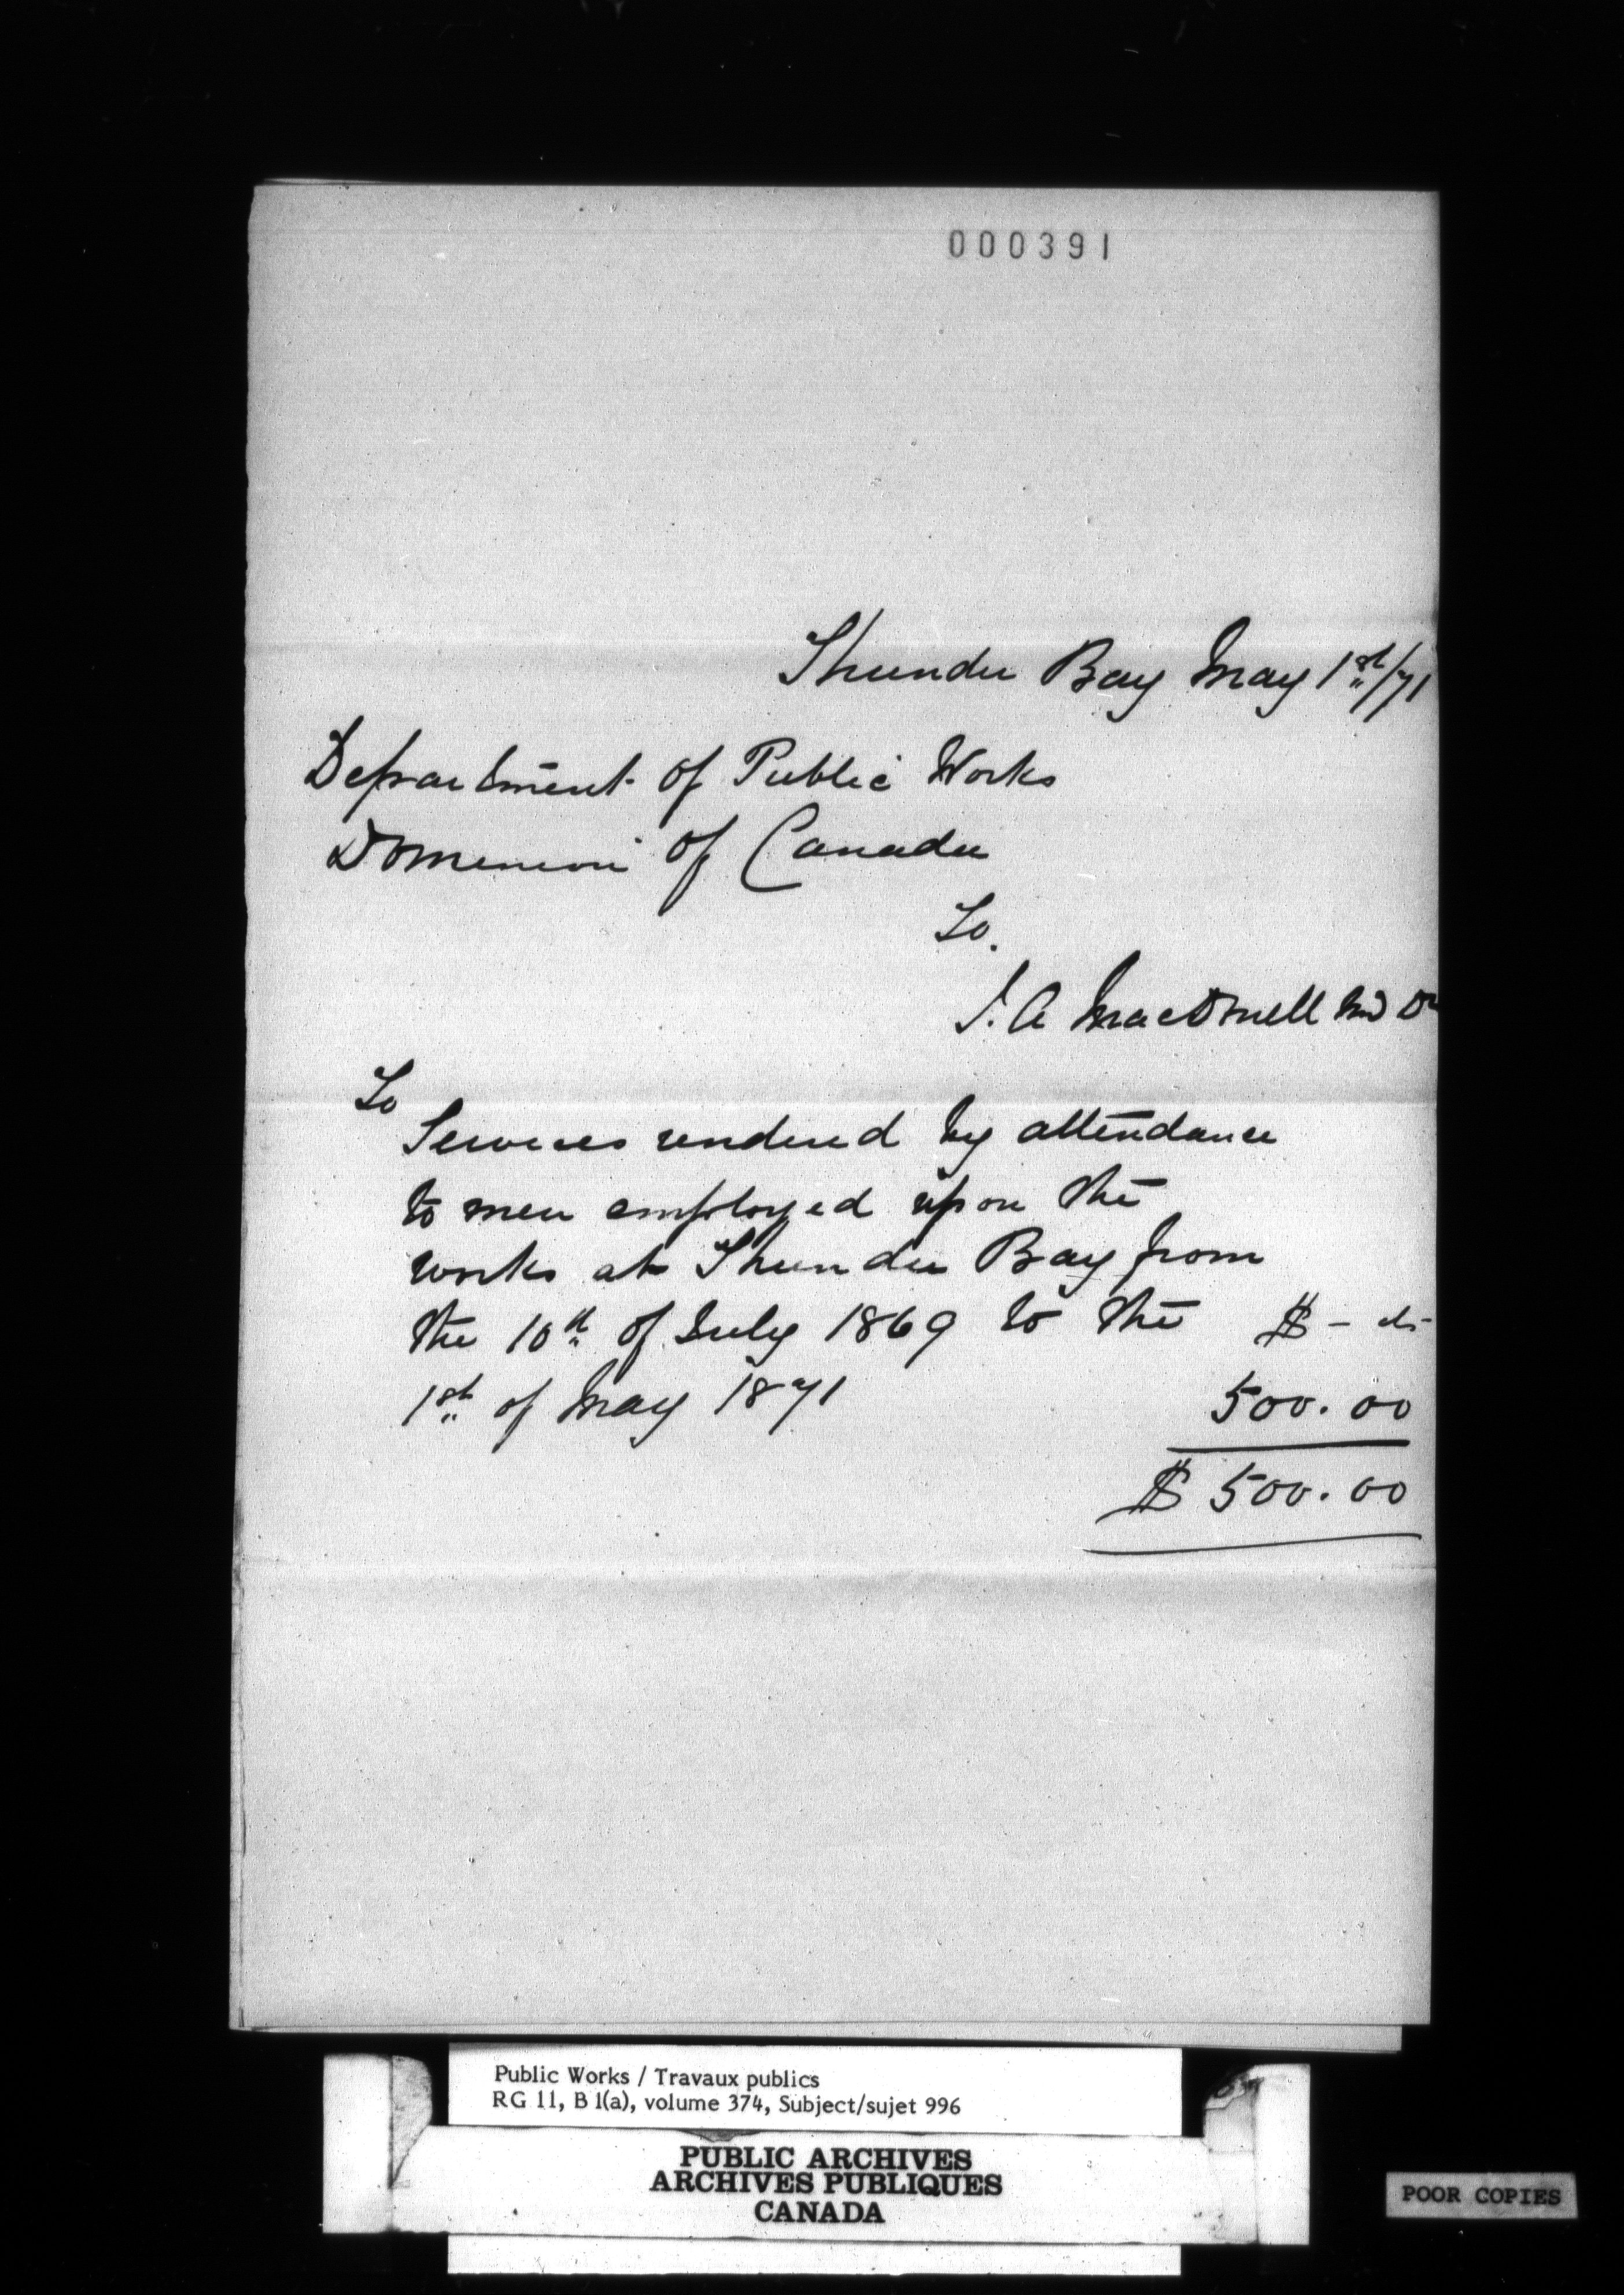 000391
Thunder Bay May 1st/71
Department of Public Works
Dominion of Canada
To.
A MacDonell MD Dr
To
Services rendered by attendance
to men employed upon the
works at Thunder Bay from
the 10th of July 1869 to the $ - cts
1st of May 1871 500.00
$ 500.00
Public Works / Travaux publics
RG 11, B 1(a), volume 374, Subject/sujet 996
PUBLIC ARCHIVES
ARCHIVES PUBLIQUES
CANADA
POOR COPIES